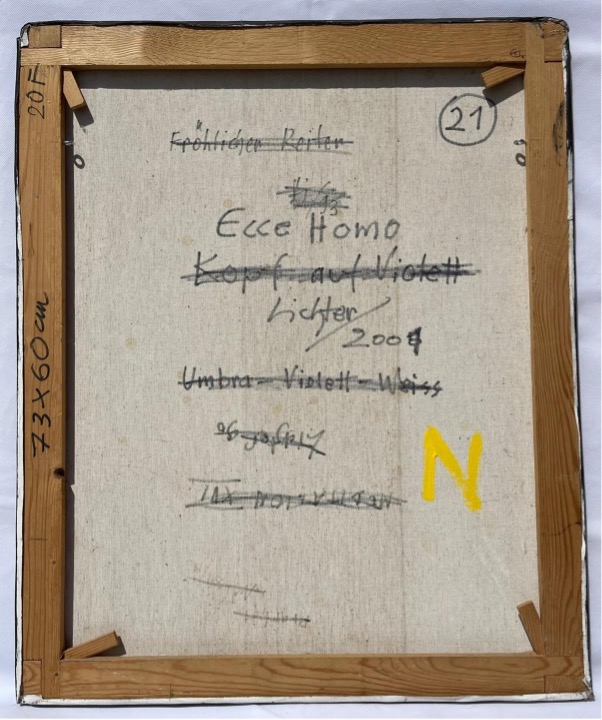 20F
21
Fröhlicher Reiter
Ecce Homo
Kopf auf Violett
Lichter
200
73X60cm
Umbra - Violett - Weiss
N